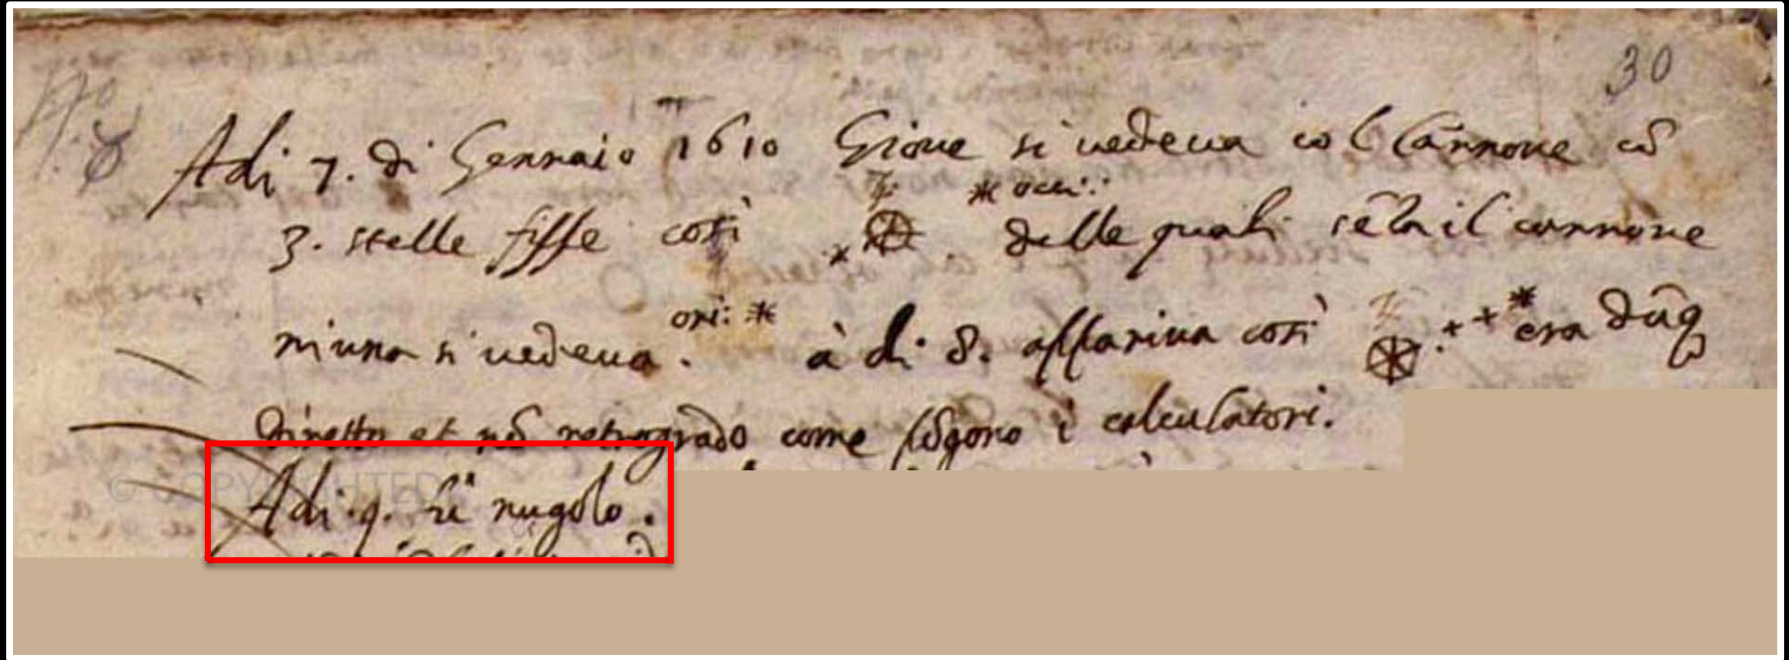 30
Adi 7. di Gennaio 1610 Giove si vedeva col Cannone cō
3. stelle fisse così delle quali sēza il cannone
niuna si vedeva. à dì 8. appariva così era dūq
diretto et nō retrogrado come pōgono i calculatori.
Adi 9. fù nugolo.